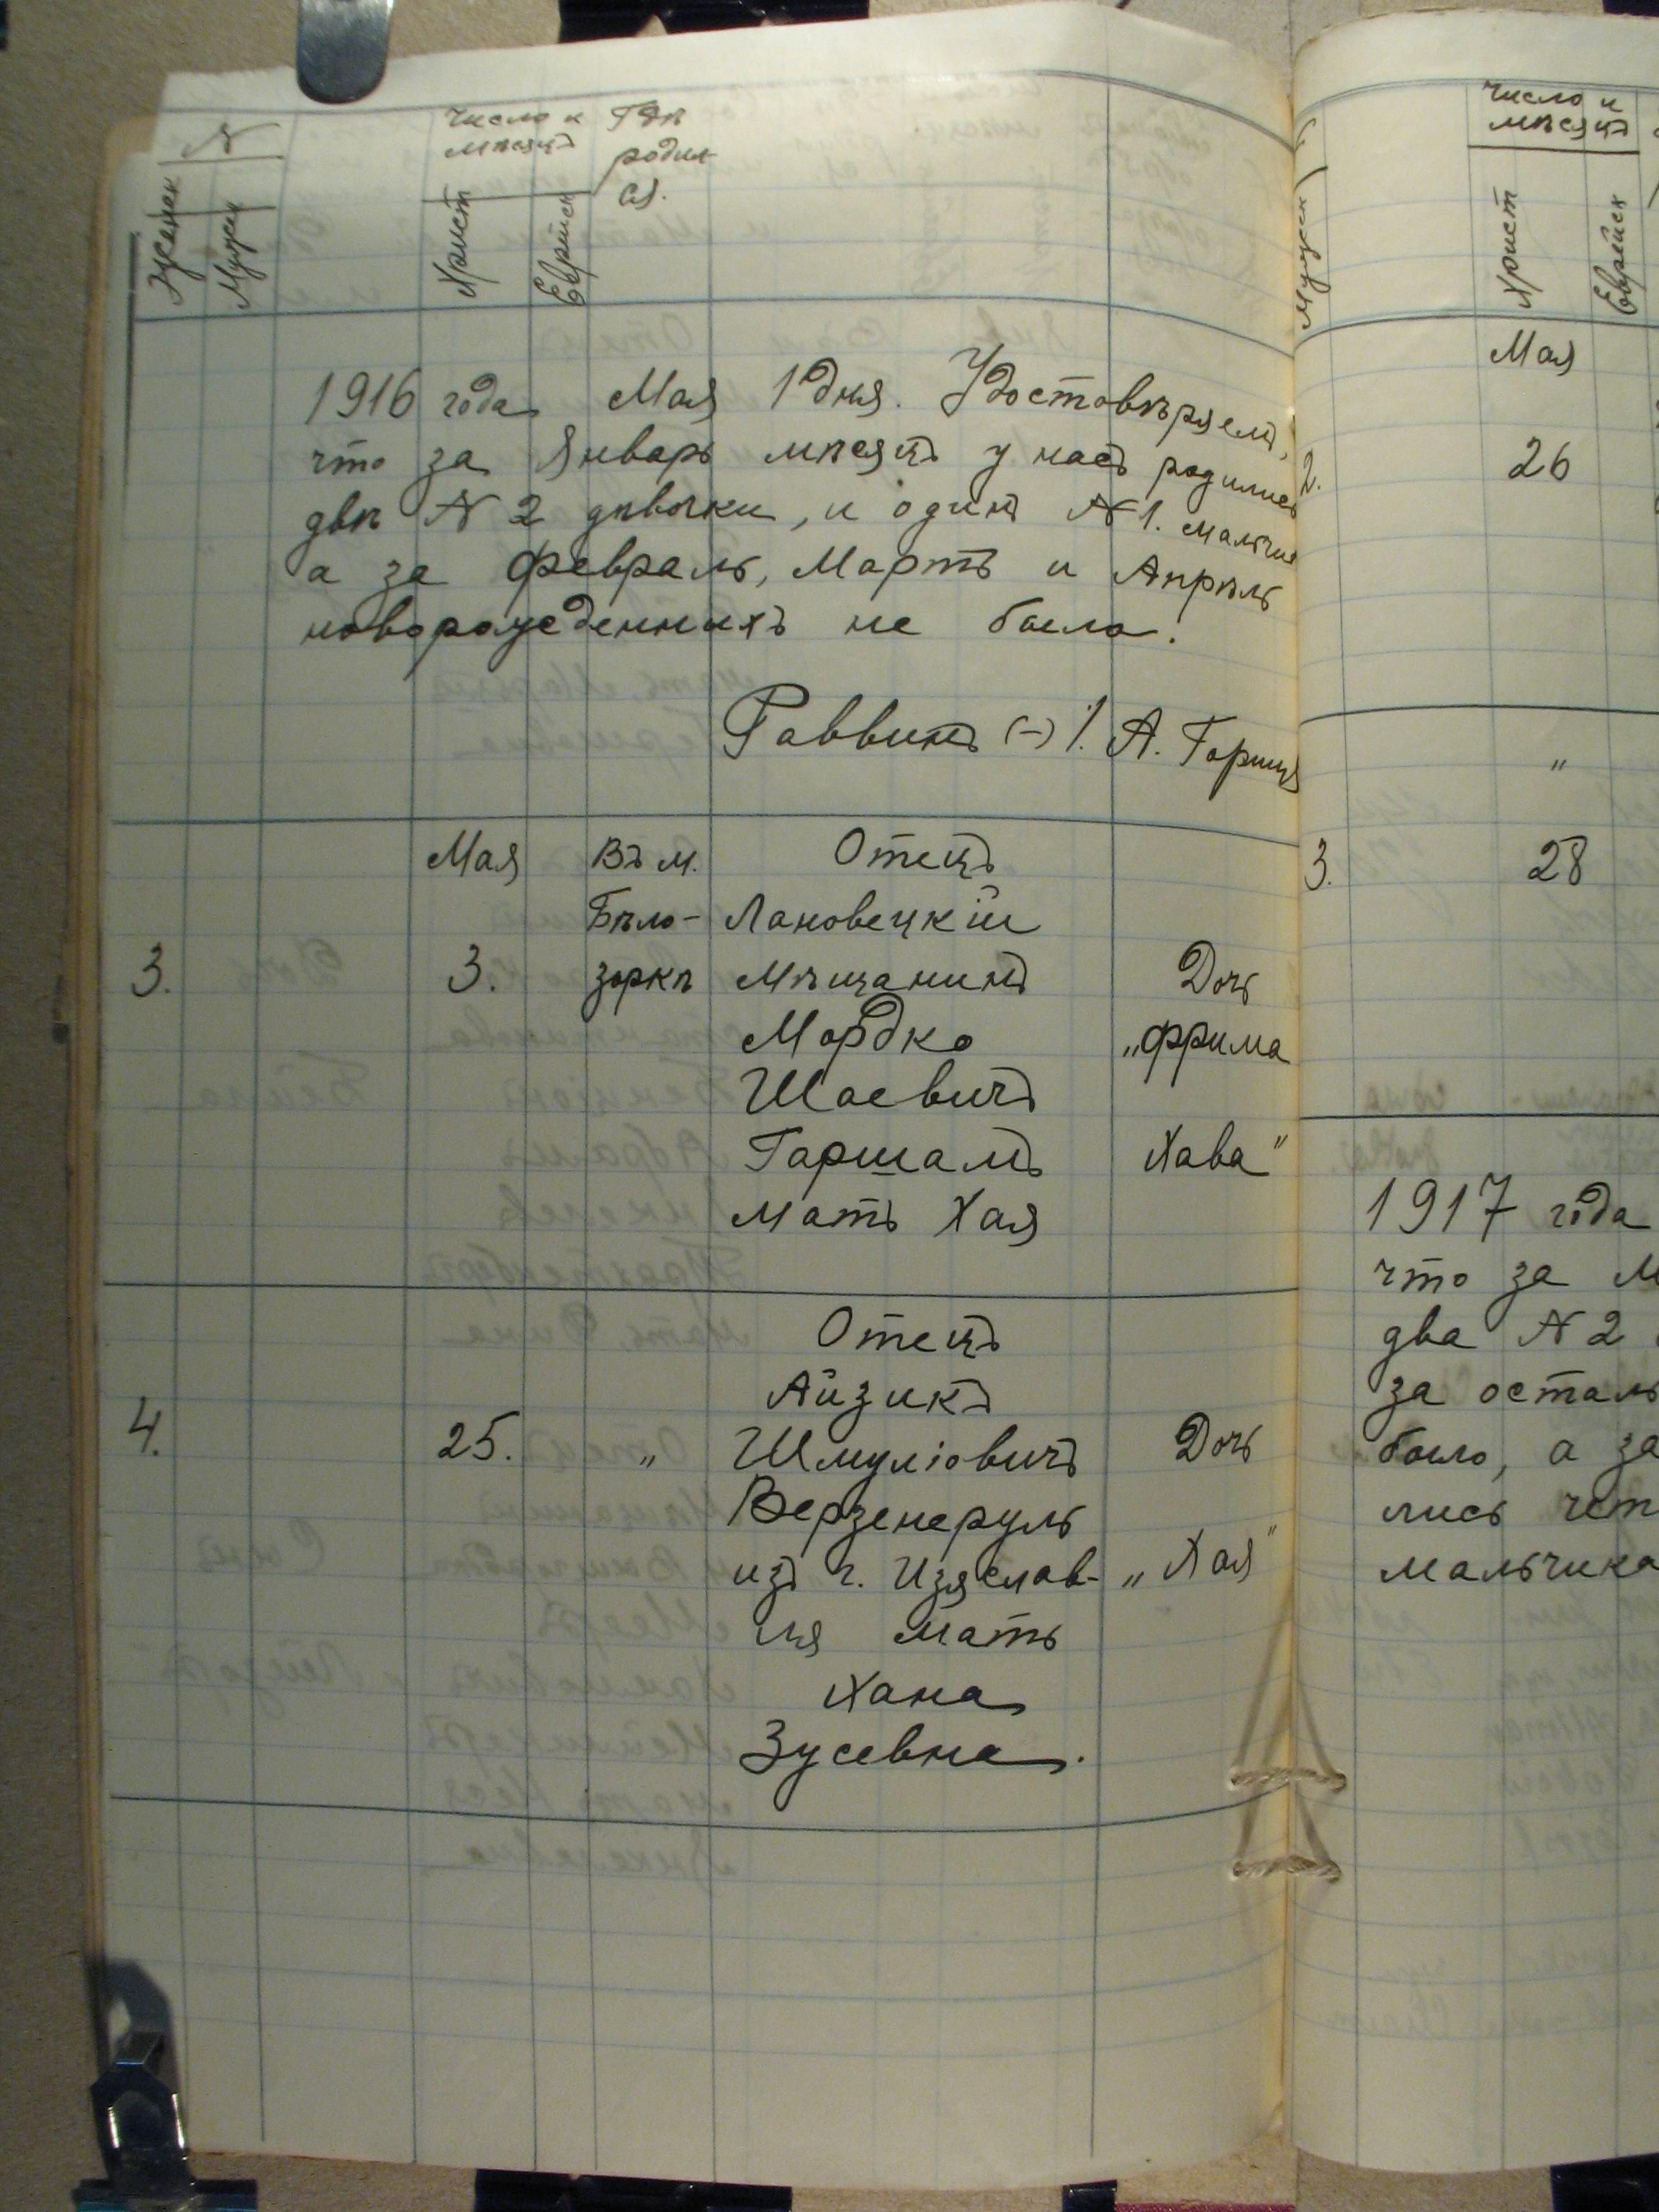 №
Женск
Мужск
Число и
мѣсяцъ
Христ
Еврейск
Гдѣ
родил
ся.
1916 года Мая 1 дня. Удостовѣряемъ,
что за Январь мѣсяцъ у насъ родились
двѣ № 2 дѣвочки, и одинъ № 1. мальчик
а за Февраль, Мартъ и Апрѣль
новорожденныхъ не было.
Раввинъ (-) А.
Мая Въ м. Отецъ
Бѣло- Лановецкій
3. 3. зоркѣ мѣщанинъ Дочь
Мордко „Фрима
Шаевичъ
Гаршамъ Хава"
мать Хая
Отецъ
Айзикъ
4. 25. " Шмуліовичъ Дочь
Верзенеруль
изъ г. Изяслав- „Хая"
ля мать
Хана
Зусевна.
Мужск
Число и
мѣсяцъ
Христ
Еврейск
Мая
2. 26
"
3. 28
1917 года
что за М
два № 2
за осталь
было, а за
лись чет
мальчика